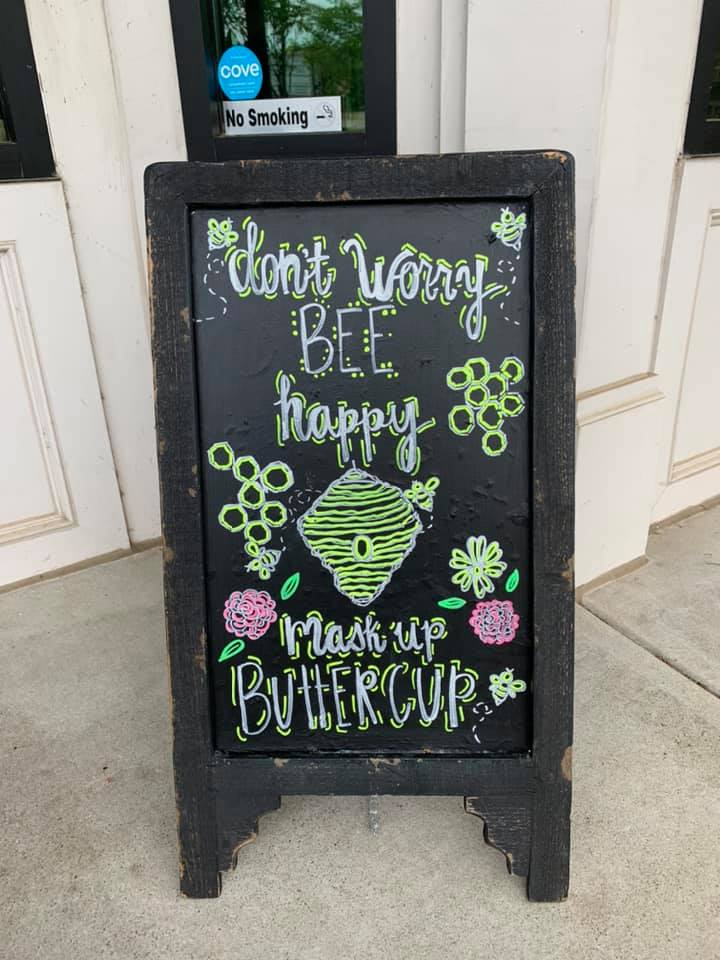 cove
No Smoking
don't worry
BEE
happy
mask up
BUttERCUP